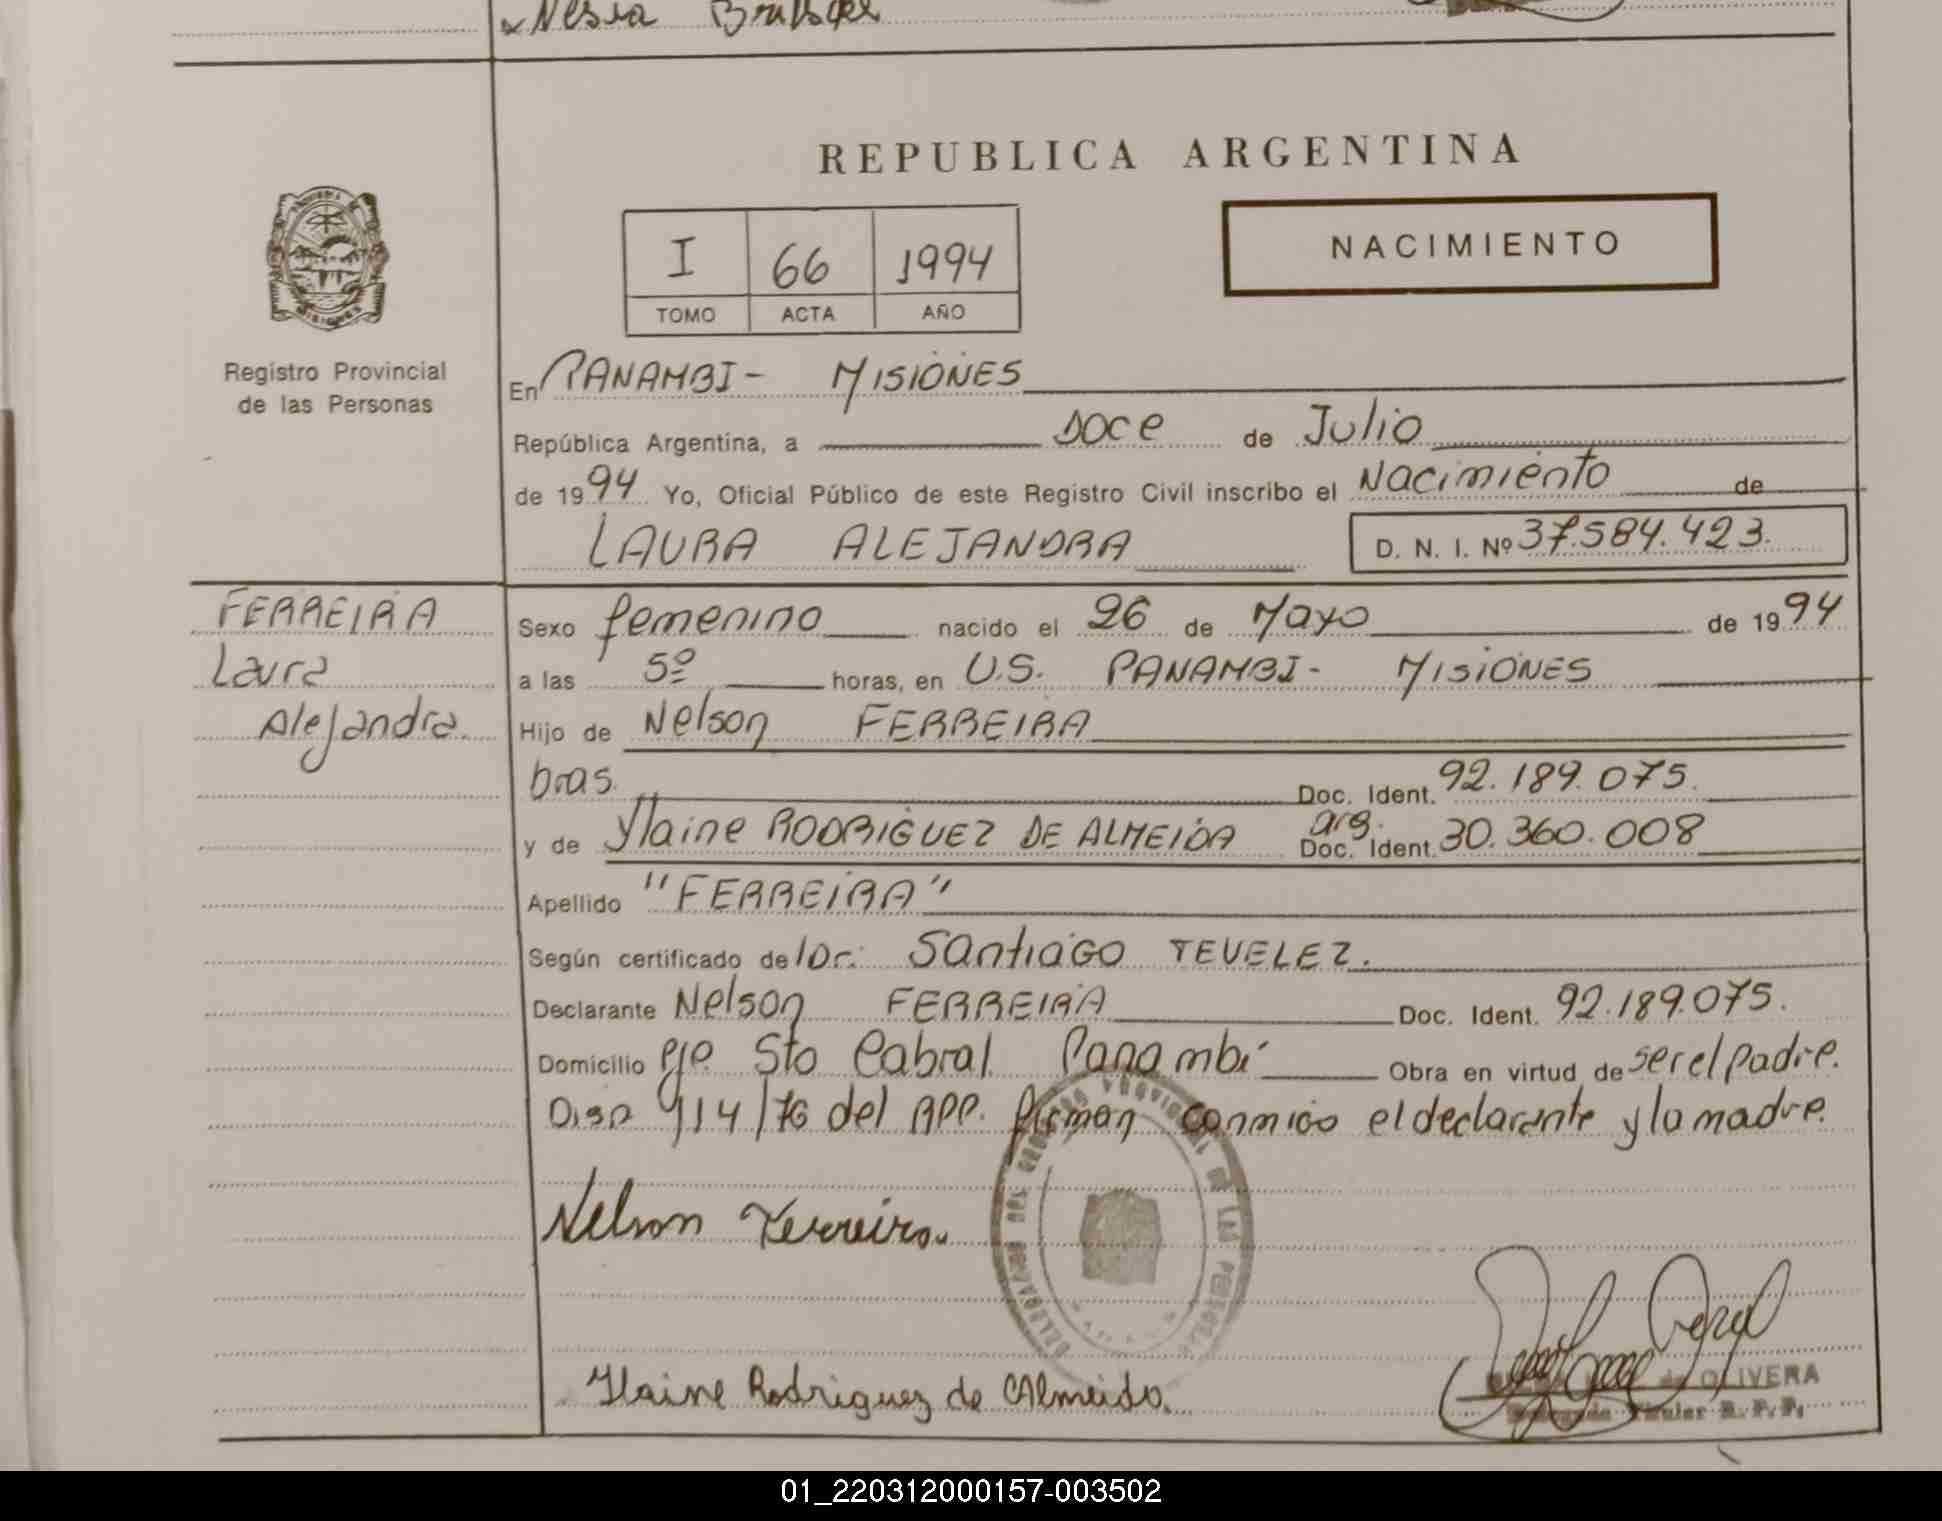 REPUBLICA ARGENTINA
NACIMIENTO
I 66 1994
TOMO ACTA AÑO
Registro Provincial
de las Personas
En PANAMBI - MISIONES
República Argentina, a DOCE de Julio
de 1994 Yo, Oficial Público de este Registro Civil inscribo el Nacimiento de
LAURA ALEJANDRA D. N. I. Nº 37.584.423.
FERREIRA
Laura
Alejandra.
Sexo femenino nacido el 26 de Mayo de 1994
a las 5º horas, en U.S. PANAMBI - MISIONES
Hijo de Nelson FERREIRA
bras. Doc. Ident. 92.189.075.
y de Ylaine RODRIGUEZ DE ALMEIDA arg. Doc. Ident. 30.360.008
Apellido "FERREIRA"
Según certificado del Dr. Santiago TEVELEZ.
Declarante Nelson FERREIRA Doc. Ident. 92.189.075.
Domicilio Pje. Sto Cabral Panambí Obra en virtud de ser el padre.
Disp 914/76 del RPP. firman conmigo el declarante y la madre.
Nelson Ferreira
Ylaine Rodriguez de Almeida.
de OLIVERA
Titular R. P. P.
01_220312000157-003502